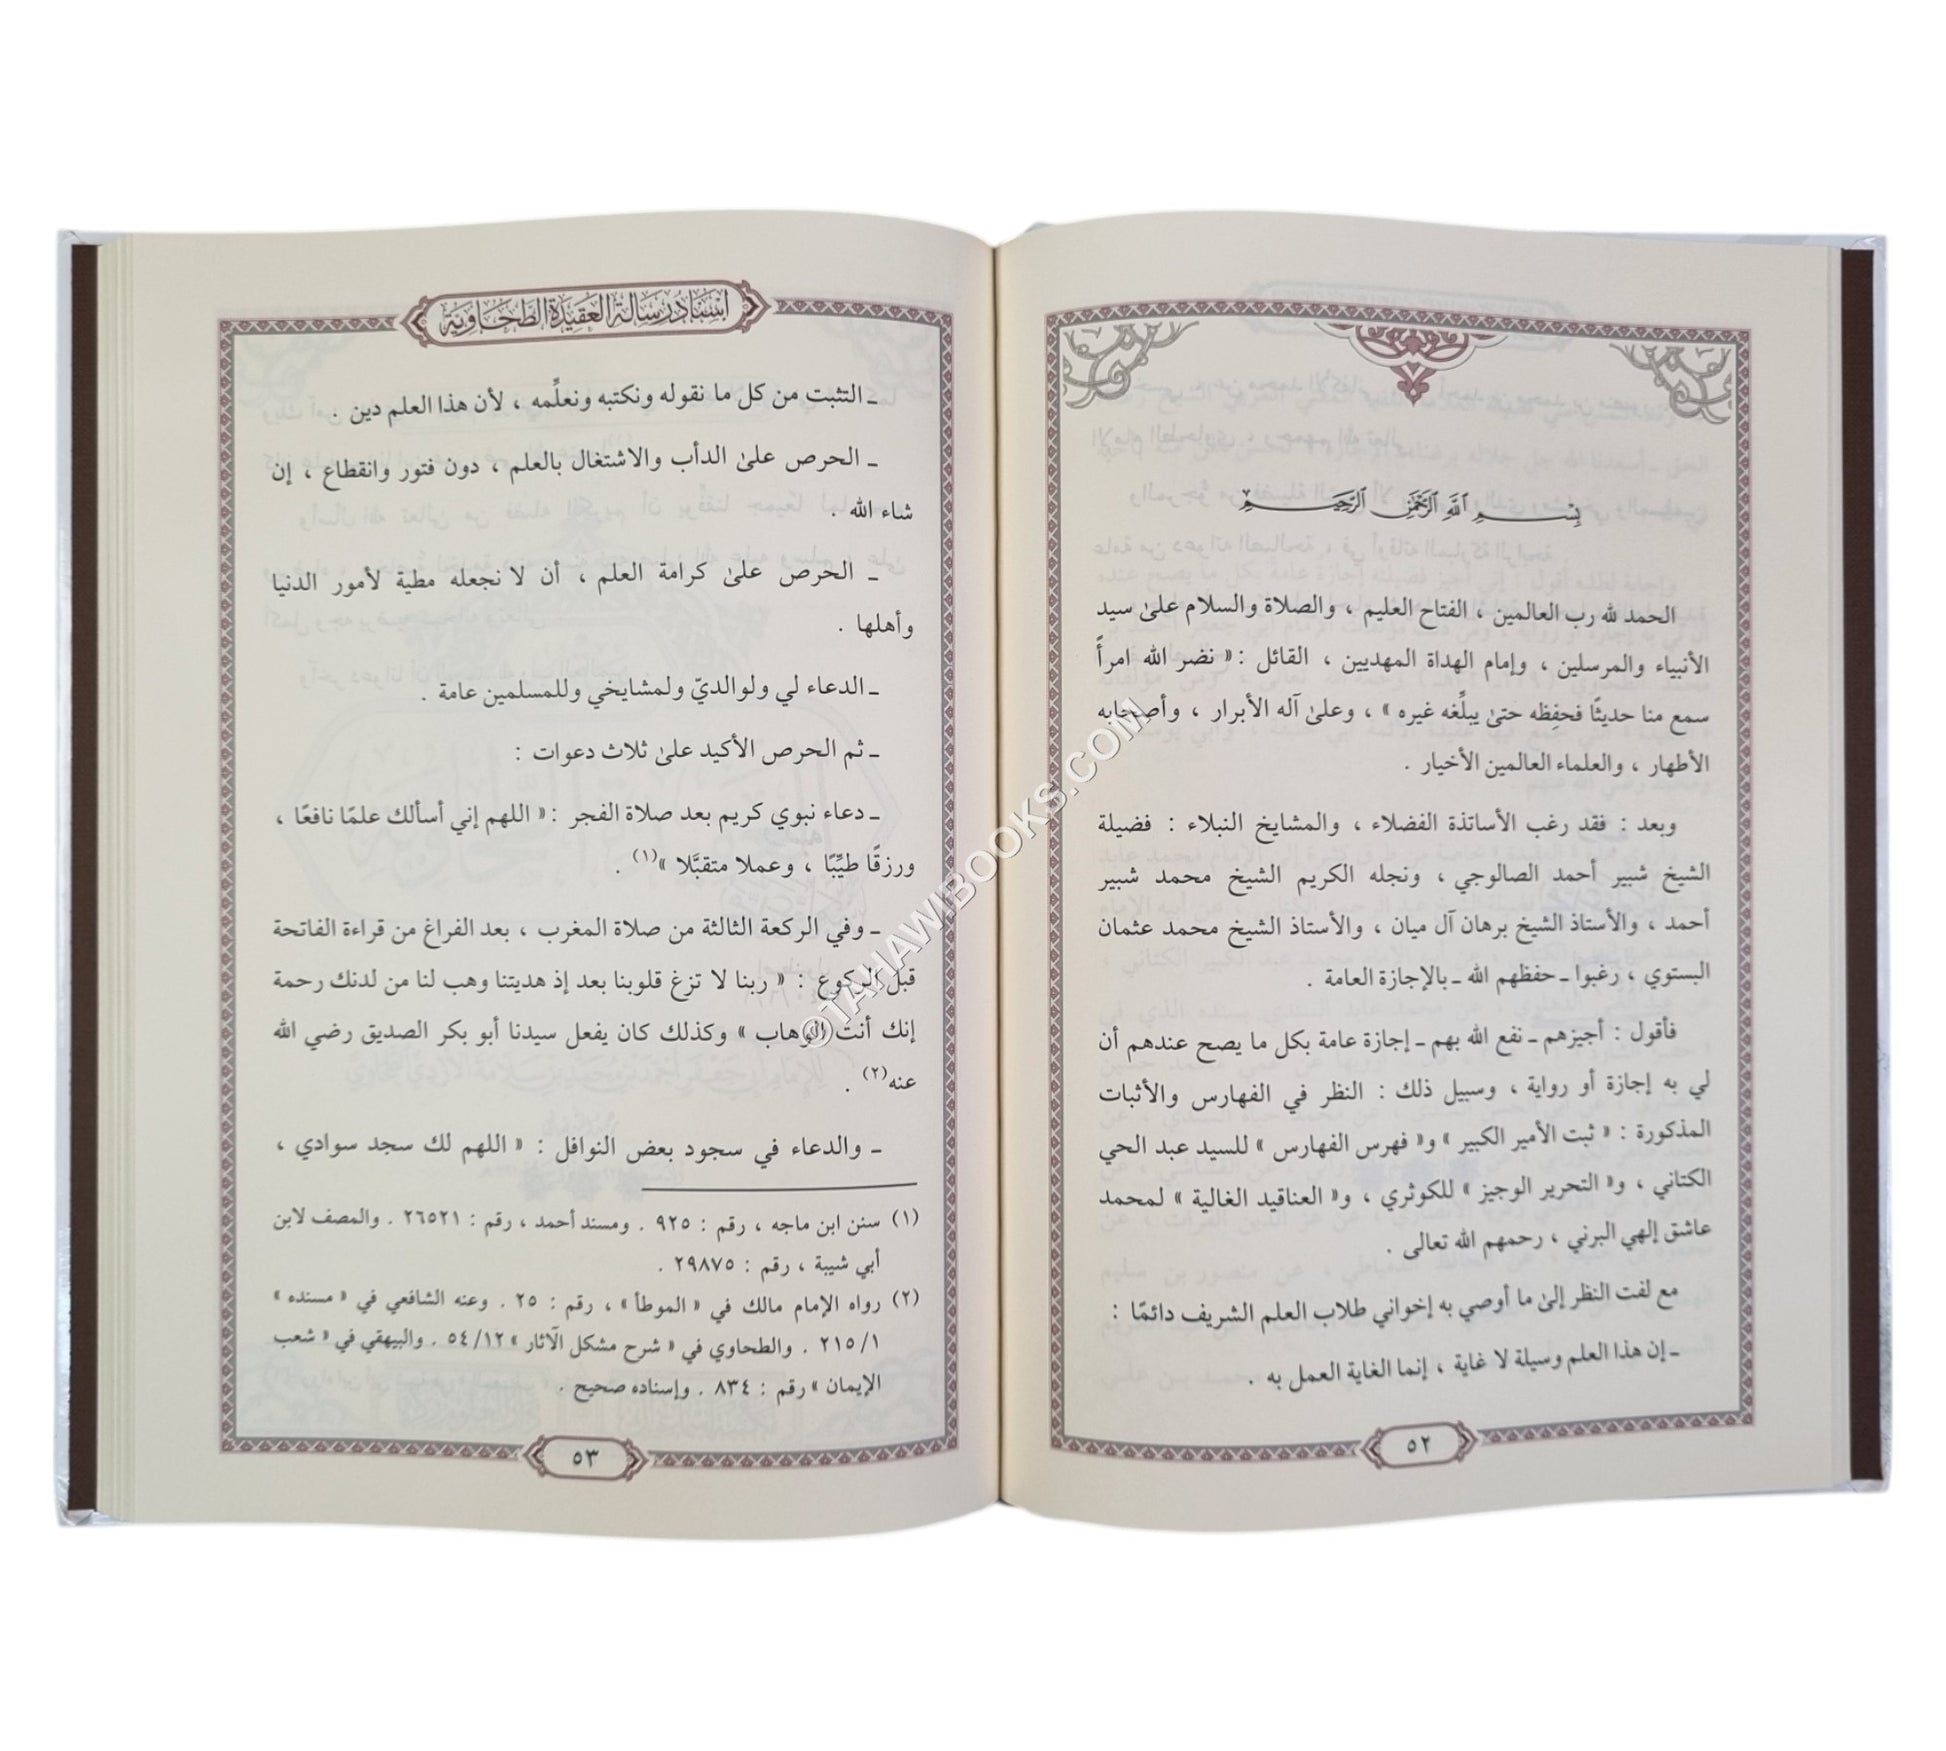 بِسْمِ اللَّهِ الرَّحْمَنِ الرَّحِيمِ
الحمد لله رب العالمين ، الفتاح العليم ، والصلاة والسلام علىٰ سيد
الأنبياء والمرسلين ، وإمام الهداة المهديين ، القائل : « نضر الله امرأً
سمع منا حديثًا فحفِظه حتىٰ يبلِّغه غيره » ، وعلىٰ آله الأبرار ، وأصحابه
الأطهار ، والعلماء العالمين الأخيار .
وبعد : فقد رغب الأساتذة الفضلاء ، والمشايخ النبلاء : فضيلة
الشيخ شبير أحمد الصالوجي ، ونجله الكريم الشيخ محمد شبير
أحمد ، والأستاذ الشيخ برهان آل ميان ، والأستاذ الشيخ محمد عثمان
البستوي ، رغبوا ـ حفظهم الله ـ بالإجازة العامة .
فأقول : أجيزهم ـ نفع الله بهم ـ إجازة عامة بكل ما يصح عندهم أن
لي به إجازة أو رواية ، وسبيل ذلك : النظر في الفهارس والأثبات
المذكورة : « ثبت الأمير الكبير » و« فهرس الفهارس » للسيد عبد الحي
الكتاني ، و« التحرير الوجيز » للكوثري ، و« العناقيد الغالية » لمحمد
عاشق إلهي البرني ، رحمهم الله تعالى .
مع لفت النظر إلىٰ ما أوصي به إخواني طلاب العلم الشريف دائمًا :
ـ إن هذا العلم وسيلة لا غاية ، إنما الغاية العمل به .
٥٢
إسناد رسالة العقيدة الطحاوية
ـ التثبت من كل ما نقوله ونكتبه ونعلِّمه ، لأن هذا العلم دين .
ـ الحرص علىٰ الدأب والاشتغال بالعلم ، دون فتور وانقطاع ، إن
شاء الله .
ـ الحرص علىٰ كرامة العلم ، أن لا نجعله مطية لأمور الدنيا
وأهلها .
ـ الدعاء لي ولوالديّ ولمشايخي وللمسلمين عامة .
ـ ثم الحرص الأكيد علىٰ ثلاث دعوات :
ـ دعاء نبوي كريم بعد صلاة الفجر : « اللهم إني أسألك علمًا نافعًا ،
ورزقًا طيِّبًا ، وعملا متقبَّلا »(١) .
ـ وفي الركعة الثالثة من صلاة المغرب ، بعد الفراغ من قراءة الفاتحة
قبل الركوع : « ربنا لا تزغ قلوبنا بعد إذ هديتنا وهب لنا من لدنك رحمة
إنك أنت الوهاب » وكذلك كان يفعل سيدنا أبو بكر الصديق رضي الله
عنه(٢) .
ـ والدعاء في سجود بعض النوافل : « اللهم لك سجد سوادي ،
(١) سنن ابن ماجه ، رقم : ٩٢٥ . ومسند أحمد ، رقم : ٢٦٥٢١ . والمصف لابن
أبي شيبة ، رقم : ٢٩٨٧٥ .
(٢) رواه الإمام مالك في « الموطأ » ، رقم : ٢٥ . وعنه الشافعي في « مسنده »
٢١٥/١ . والطحاوي في « شرح مشكل الآثار » ٥٤/١٢ . والبيهقي في « شعب
الإيمان » رقم : ٨٣٤ . وإسناده صحيح .
٥٣
©TAHAWIBOOKS.COM